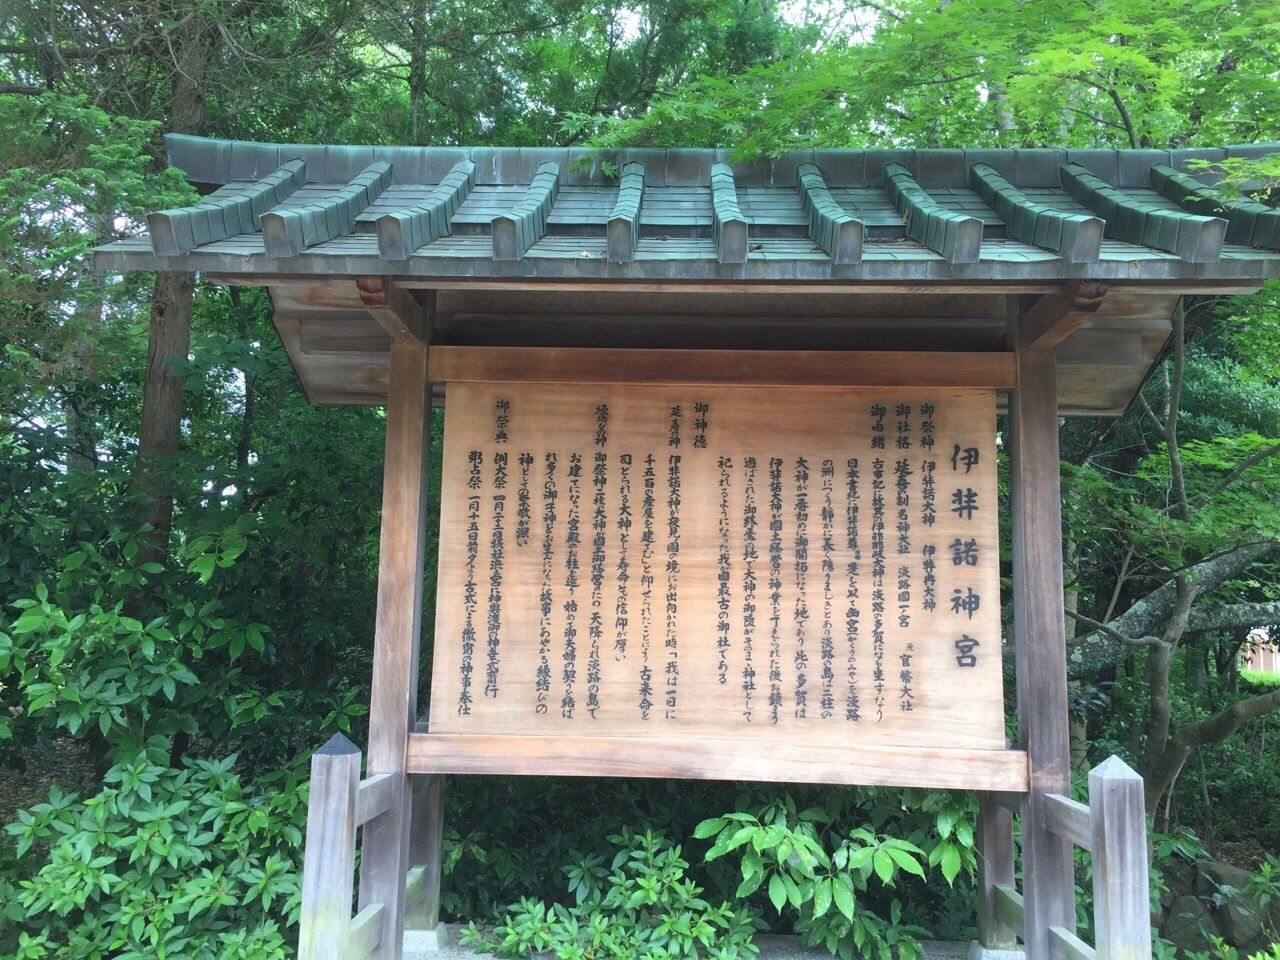 伊弉諾神宮
御祭神 伊弉諾大神 伊弉冉大神
御社格 延喜の制名神大社 淡路國一宮 元官幣大社
御由緒 古事記に故其の伊耶那岐大神は淡路の多賀になも坐すなり
日本書紀に伊弉諾尊 是を以て幽宮(かくりのみや)を淡路
の洲につくり静かに長く隠れましきとあり淡路の島は二柱の
大神が一番初めに御開拓になった地であり 此の多賀は
伊弉諾大神が國土経営の神業を了えられた後お鎮まり
遊ばされた御終焉の地で大神の御陵がそのまゝ神社として
祀られるようになった我が國最古の御社である
御神徳
延壽の神 伊弉諾大神が夜見の國の境にお出向かれた時「我は一日に
千五百の産屋を建てむ」と仰せられたことにより 古来命を
司どられる大神として寿命 その信仰が厚い
縁結びの神 御祭神二柱の大神は國土御経営のため 天降られ淡路の島で
お建てになった宮殿の柱を廻り 始めて御夫婦の契りを結ば
れ多くの御子神をお生みになった故事にあやかる縁結びの
神としての崇敬が深い
御祭典 例大祭 四月二十二日摂社浜の宮に神輿渡御の神幸式斎行
粥占祭 一月十五日前夕より古式による徹宵の神事を奉仕